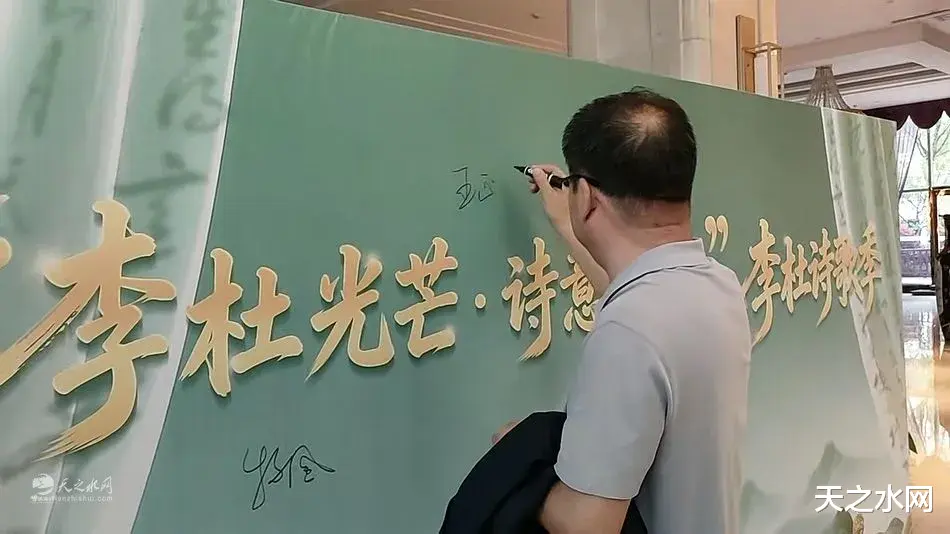 李杜光芒·诗意
”李杜诗歌季
天之水网
www.tianzhishui.com
天之水网